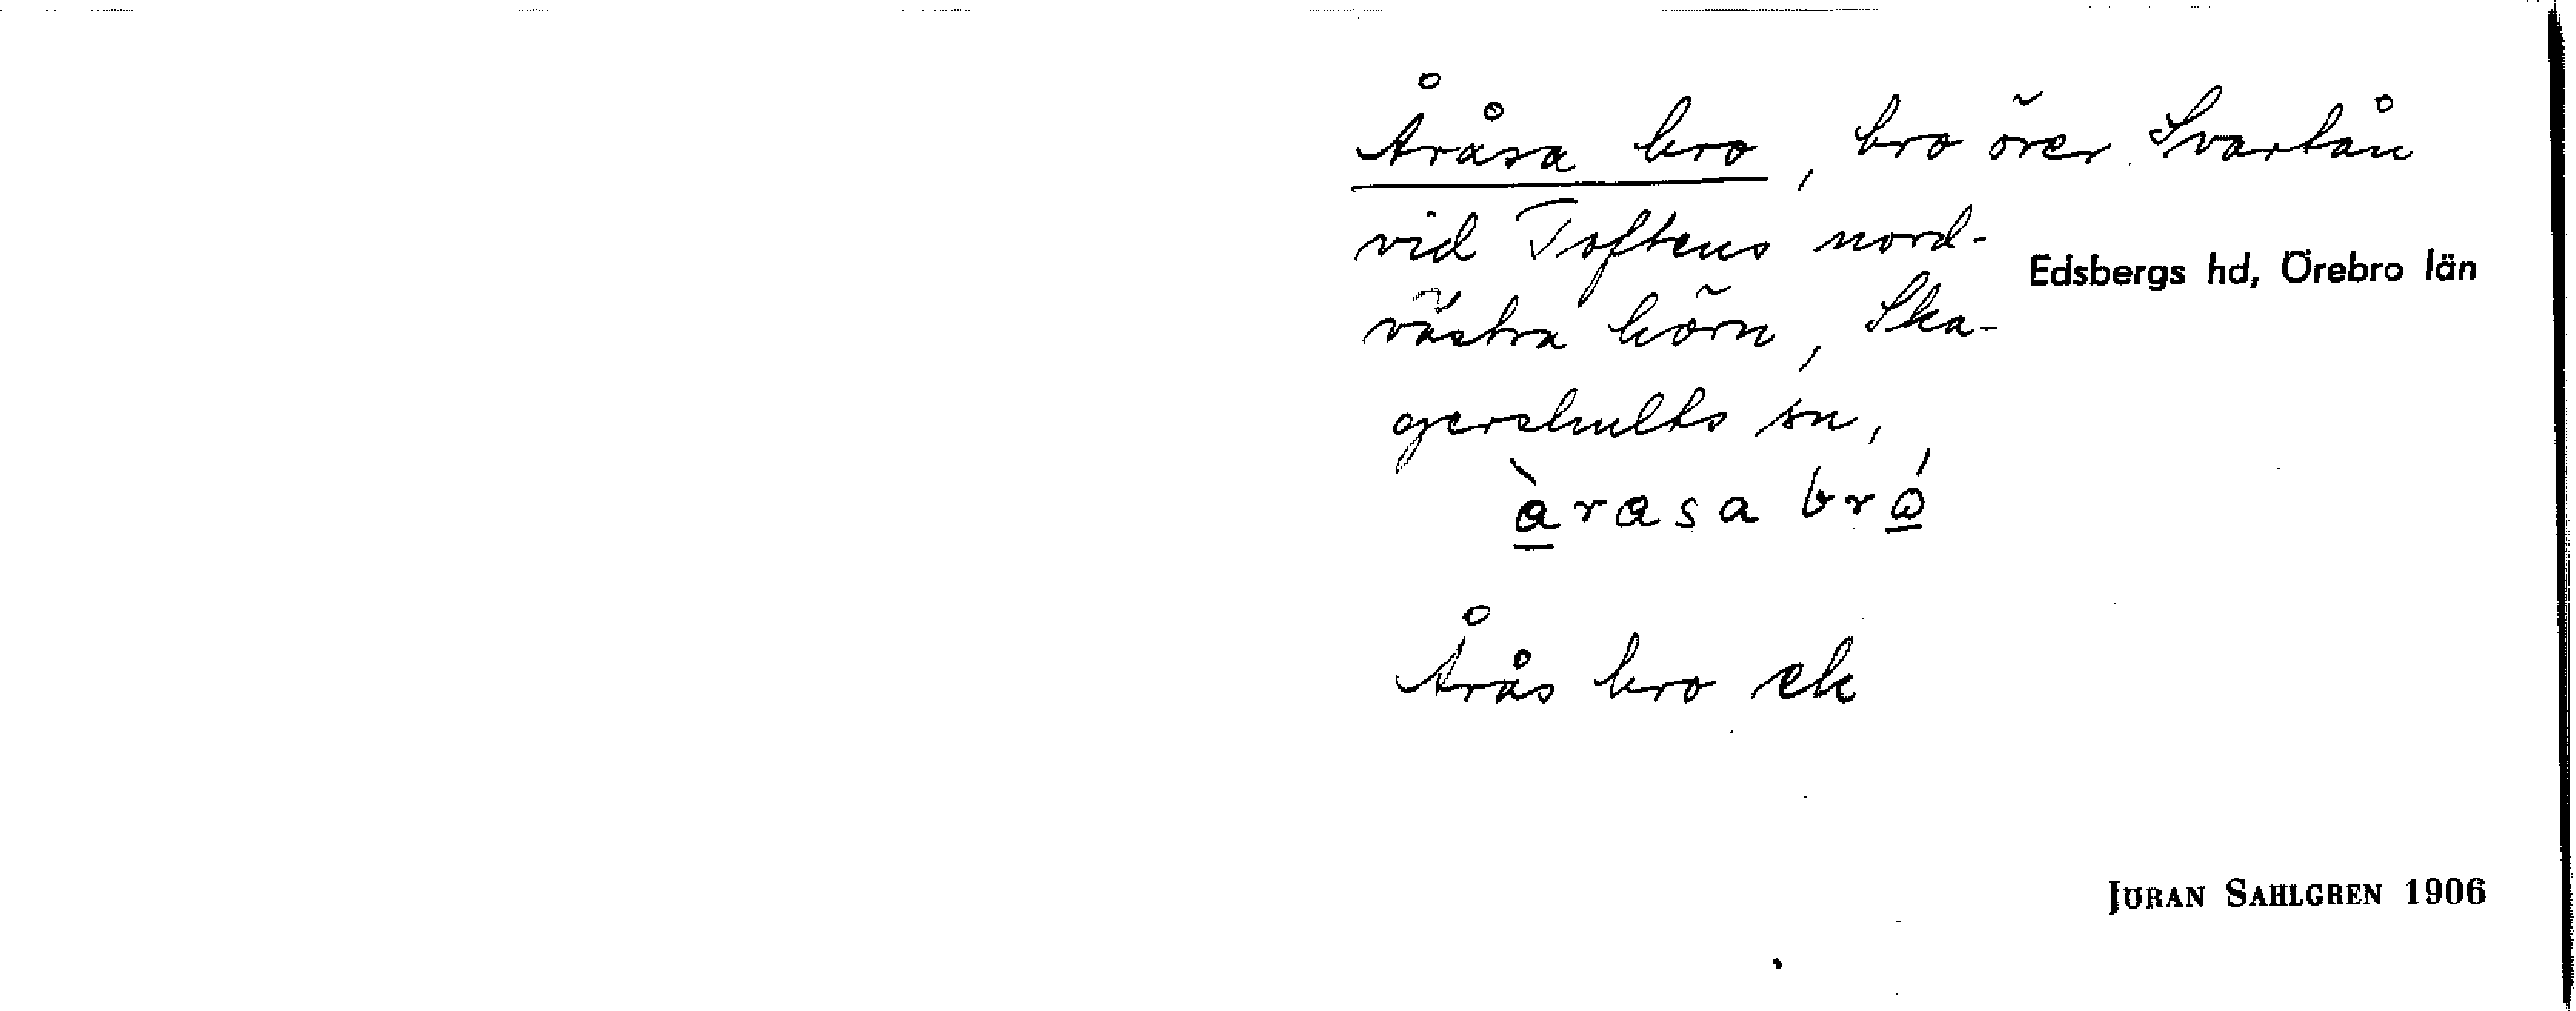 Åråsa bro, bro över Svartån
vid Toftens nord-
Edsbergs hd, Örebro län
västra hörn, Ska-
gershults sn,
àrasa bró
Årås bro ek
JÖRAN SAHLGREN 1906